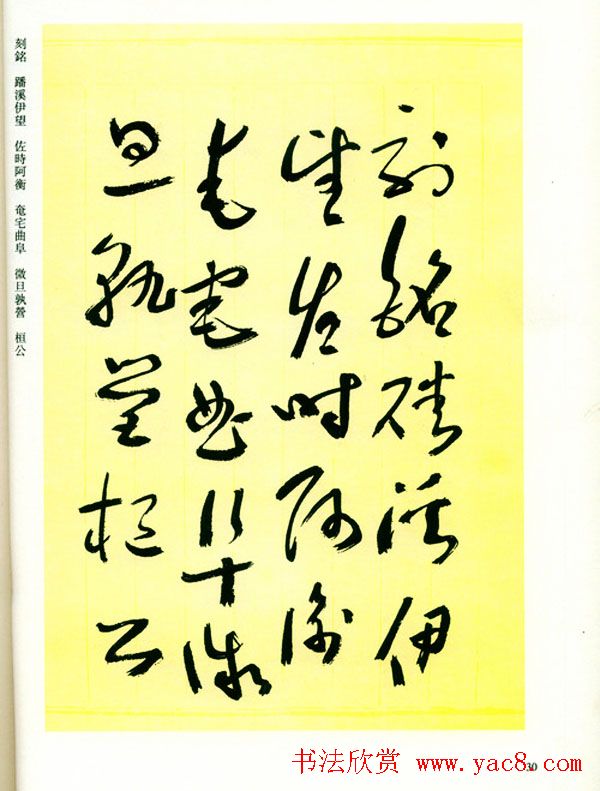 刻銘磻溪伊
望佐時阿衡
奄宅曲阜微
旦孰營桓公
刻銘 蹯溪伊望 佐時阿衡 奄宅曲阜 微旦孰營 桓公
书法欣赏 www.yac8.com
30